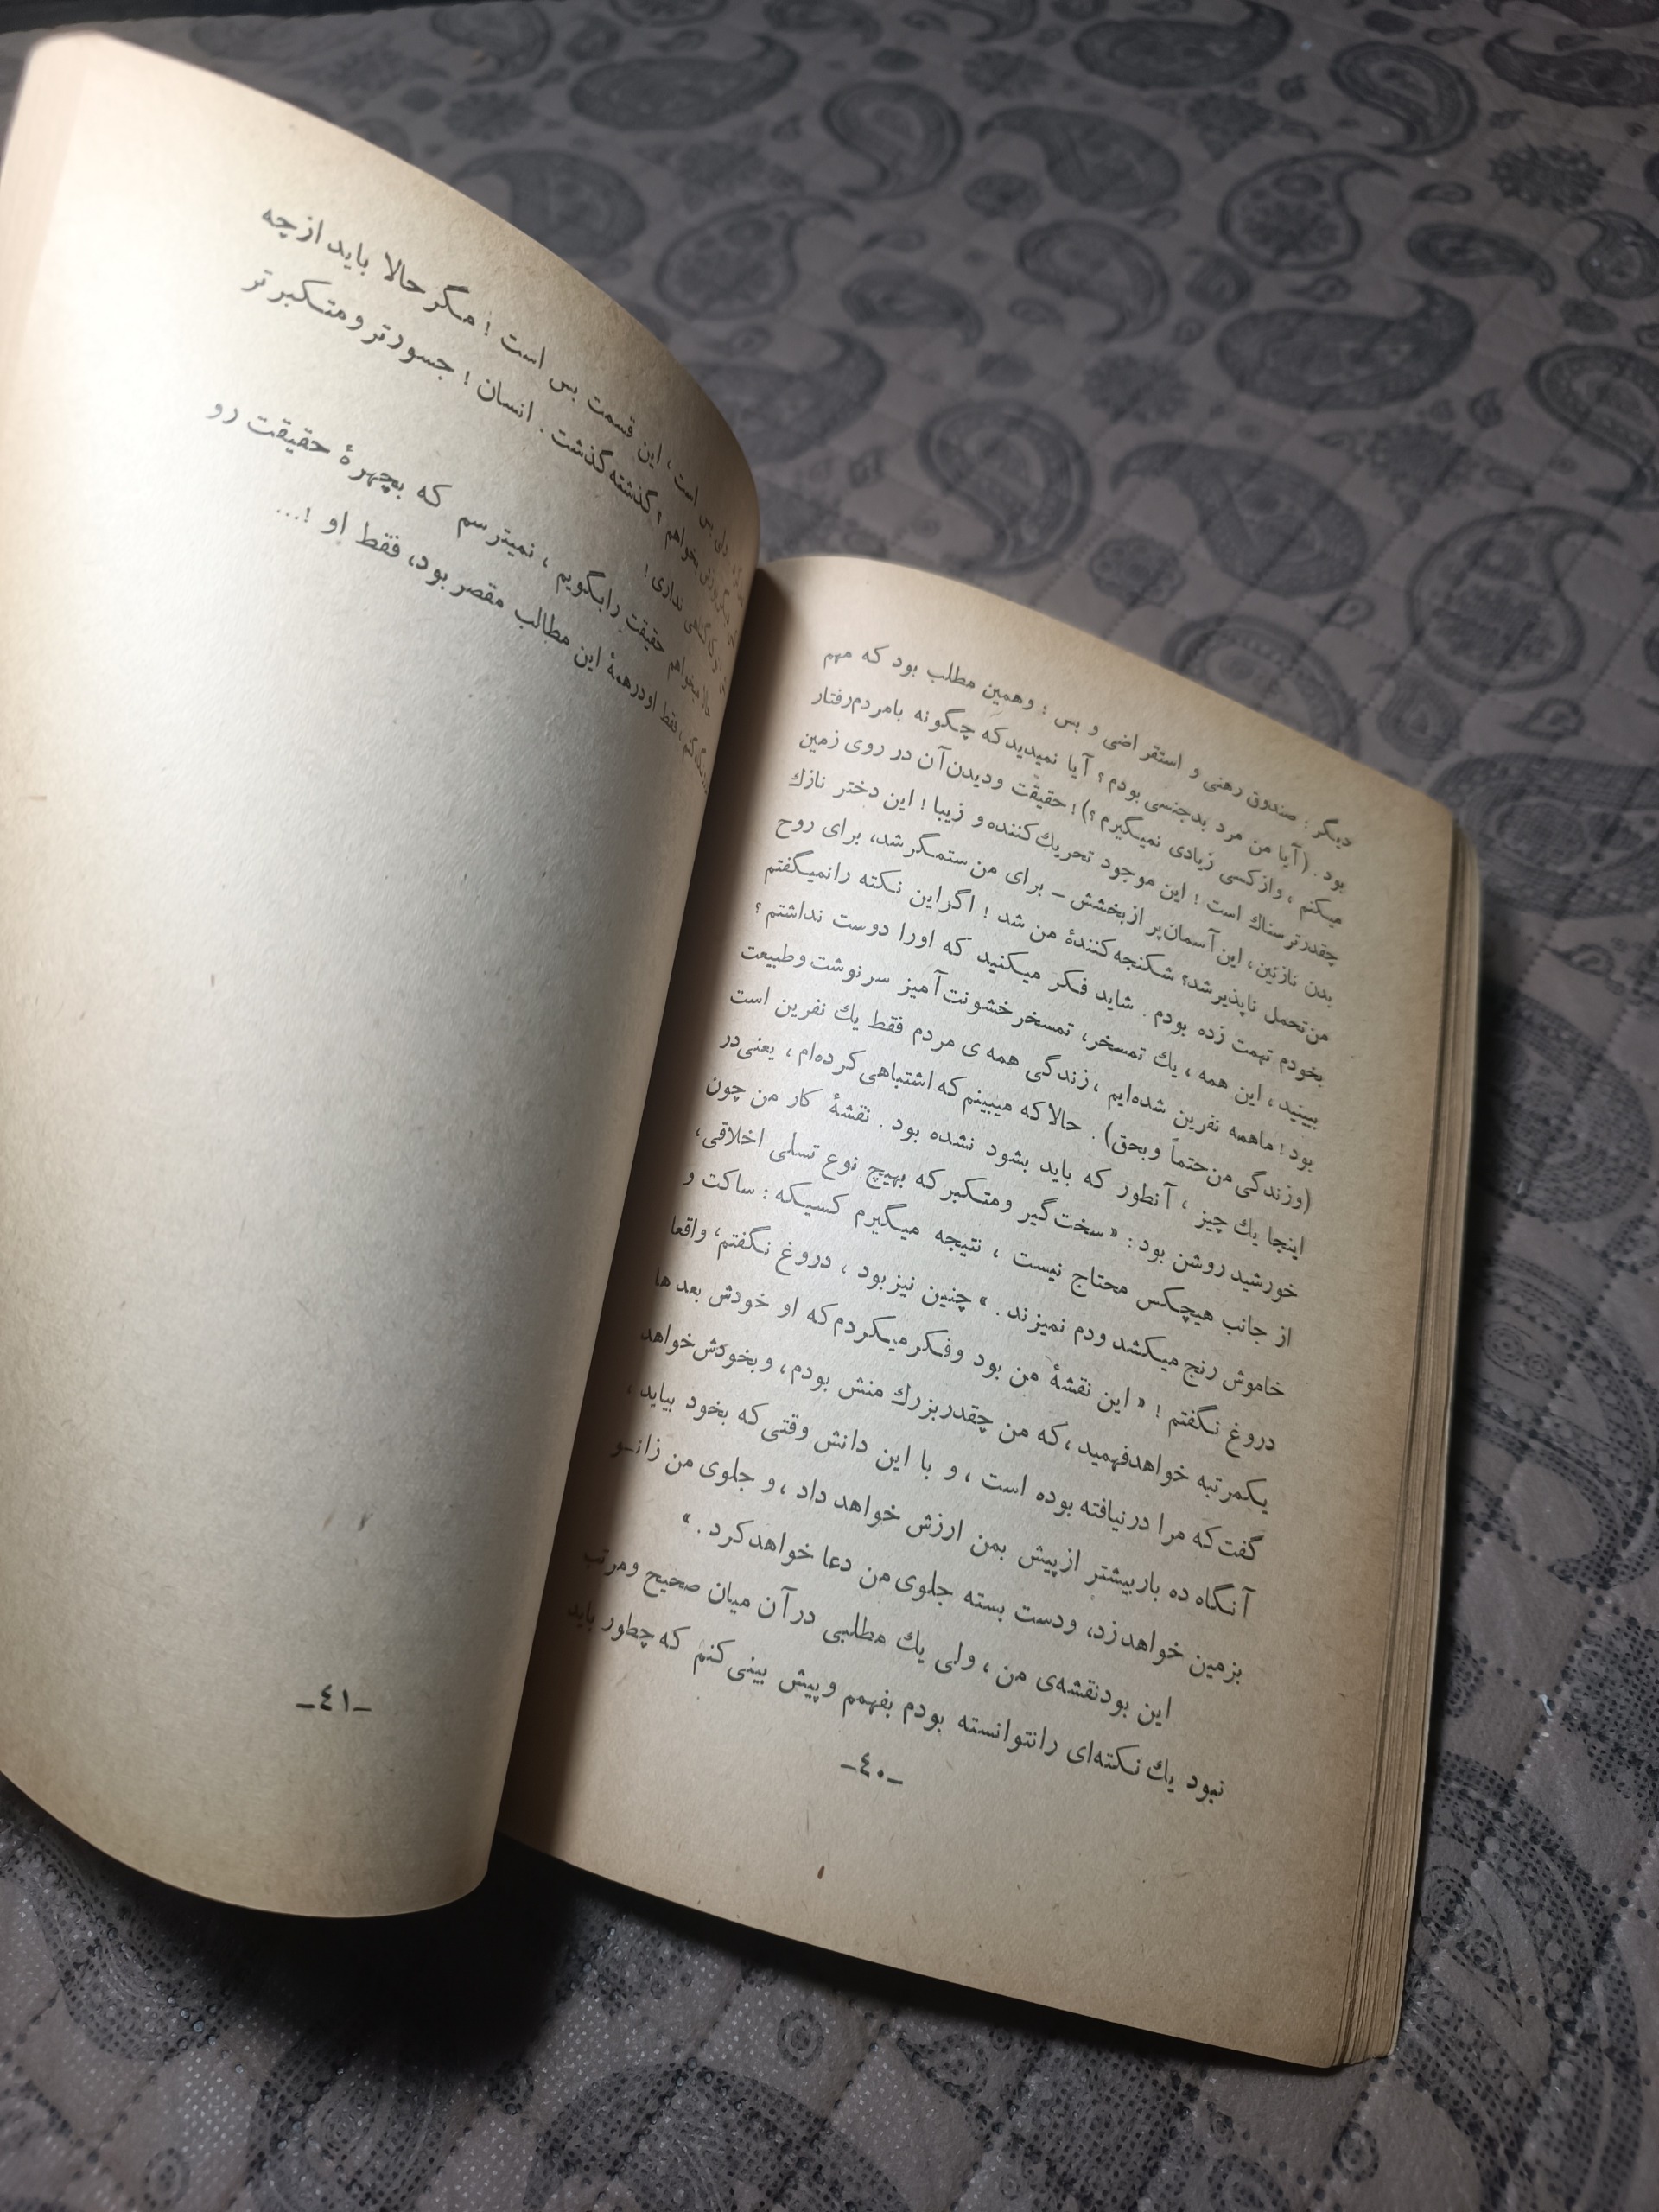 دیگر : صندوق رهنی و استقراضی و بس ؛ وهمین مطلب بود که مهم
بود . (آیا من مرد بدجنسی بودم ؟ آیا نمیدیدکه چگونه بامردم‌رفتار
میکنم ، وازکسی زیادی نمیگیرم ؟) ! حقیقت ودیدن‌آن در روی زمین
چقدرترسناك است ! این موجود تحریك‌کننده و زیبا ! این دختر نازك
بدن نازنین، این‌آسمان‌پر ازبخشش – برای من ستمگرشد، برای روح
من‌تحمل ناپذیرشد؟ شکنجه‌کنندهٔ من شد ! اگراین نکته رانمیگفتم
بخودم تهمت زده بودم . شاید فکر میکنید که اورا دوست نداشتم ؟
ببینید ، این همه ، یك تمسخر، تمسخرخشونت‌آمیز سرنوشت وطبیعت
بود ! ماهمه نفرین شده‌ایم ، زندگی همه ی مردم فقط یك نفرین است
(وزندگی من‌حتماً وبحق) . حالاکه میبینم که اشتباهی کرده‌ام ، یعنی‌در
اینجا یك چیز ، آنطور که باید بشود نشده بود . نقشهٔ کار من چون
خورشید روشن بود : « سخت‌گیر ومتکبرکه بهیچ نوع تسلی اخلاقی،
از جانب هیچکس محتاج نیست ، نتیجه میگیرم کسیکه : ساکت و
خاموش رنج میکشد ودم نمیزند . » چنین نیزبود ، دروغ نگفتم، واقعا
دروغ نگفتم ! « این نقشهٔ من بود وفکرمیکردم‌که او خودش بعدها
یکمرتبه خواهدفهمید ،که من چقدربزرك منش بودم، وبخودش‌خواهد
گفت‌که مرا درنیافته بوده است ، و با این دانش وقتی‌که بخود بیاید ،
آنگاه ده باربیشتر ازپیش بمن ارزش خواهدداد ، و جلوی من زانو
بزمین خواهدزد، ودست بسته جلوی من دعا خواهدکرد . »
این بودنقشه‌ی من ، ولی یك مطلبی درآن میان صحیح ومرتب
نبود یك نکته‌ای رانتوانسته بودم بفهمم وپیش بینی‌کنم که چطور باید
–٤٠–
ولی بس است ، این قسمت بس است ! مگرحالا باید ازچه
بخواهم ؟ گذشته‌گذشت . انسان ! جسورتر ومتکبرتر
نداری !
حالا میخواهم حقیقت رابگویم ، نمیترسم که بچهرهٔ حقیقت رو
فقط اودرهمهٔ این مطالب مقصر بود، فقط او !...
–٤١–